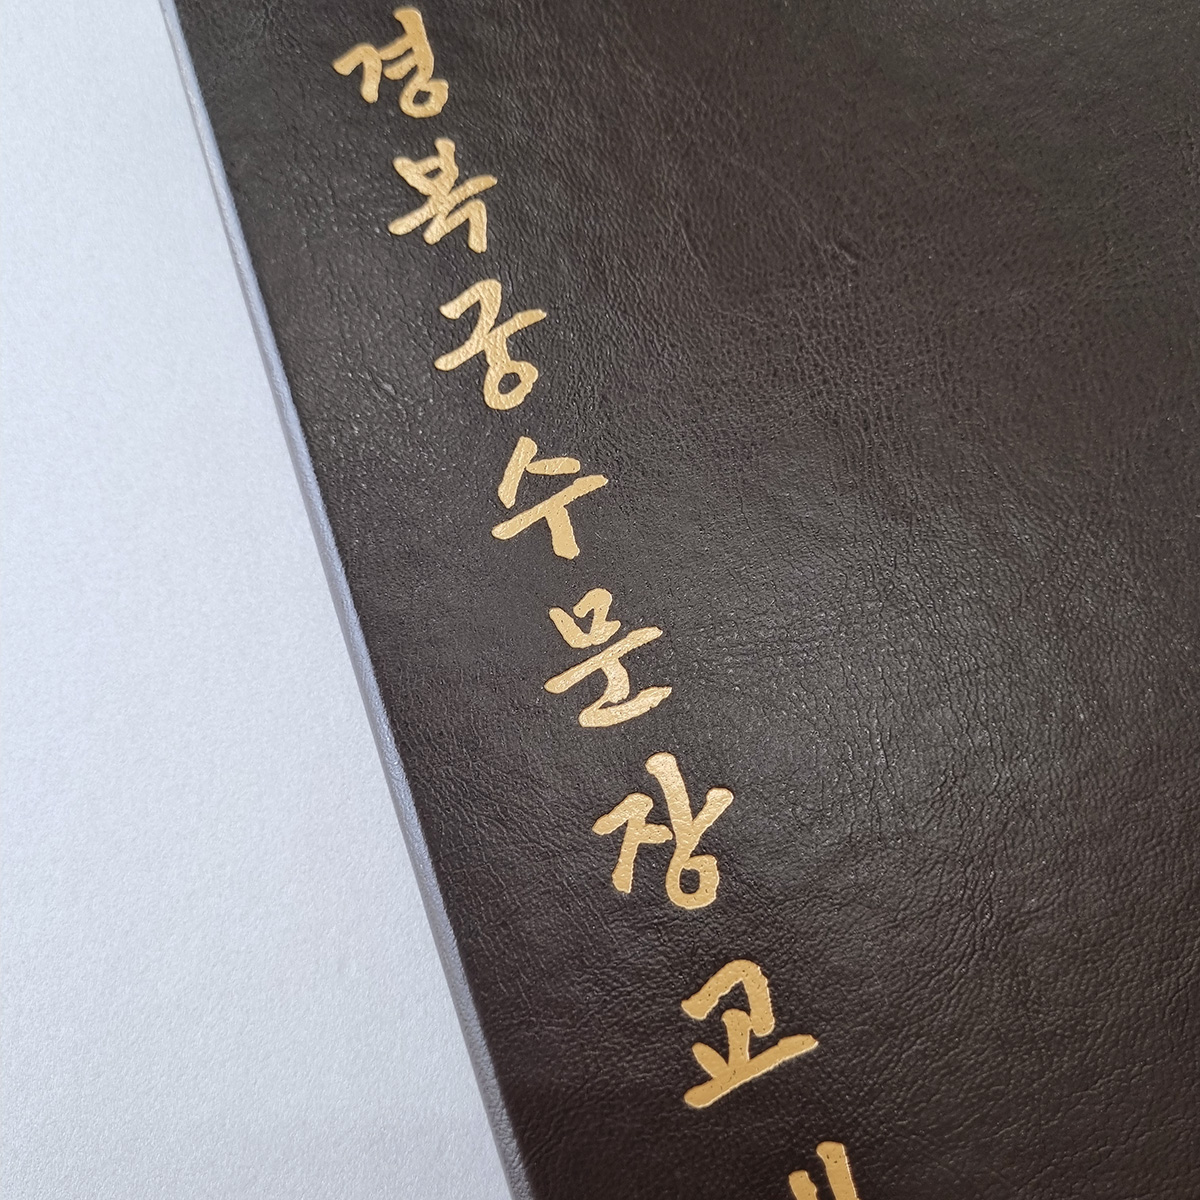 경복궁수문장교